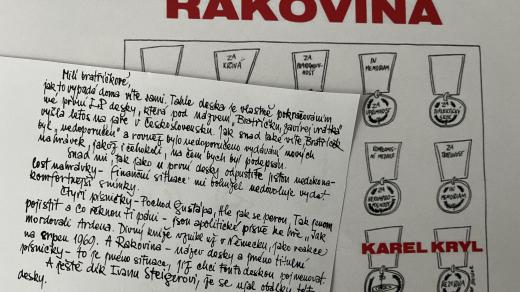 RAKOVINA
Milí bratříčkové,
jak to vypadá doma víte sami. Tahle deska je vlastně pokračováním
mé první LP desky, která pod názvem „Bratříčku, zavírej vrátka"
vyšla letos na jaře v Československu. Jak snad také víte, Bratříček
byl „nedoporučen" a rovněž bylo nedoporučeno vydávání nových
nahrávek, jakož i čehokoli, na čem bych byl podepsán.
Snad mi, tak jako u první desky odpustíte jistou nedokona-
lost nahrávky - Finanční situace mi bohužel nedovoluje vydat
komfortnější snímky.
Čtyři písničky - Pochod Gustapa, Hle jak se perou, Tak jenom
pojistit a Co řeknou ti páni - jsou apolitické písně ke hře „Jak
mordovali Ardena. Divný kníže vznikl už v Německu, jako reakce
na srpen 1969. A Rakovina - název desky a jméno titulní
písničky - to je jméno situace, již chci touto deskou pojmenovat.
A ještě dík Ivanu Steigerovi, že se ujal obálky této
desky.
ZA
KŘIVÁ
ZA
IN
MEMORIAM
ZA
UPŘÍMNOST
ZA
ZA
KAREL KRYL